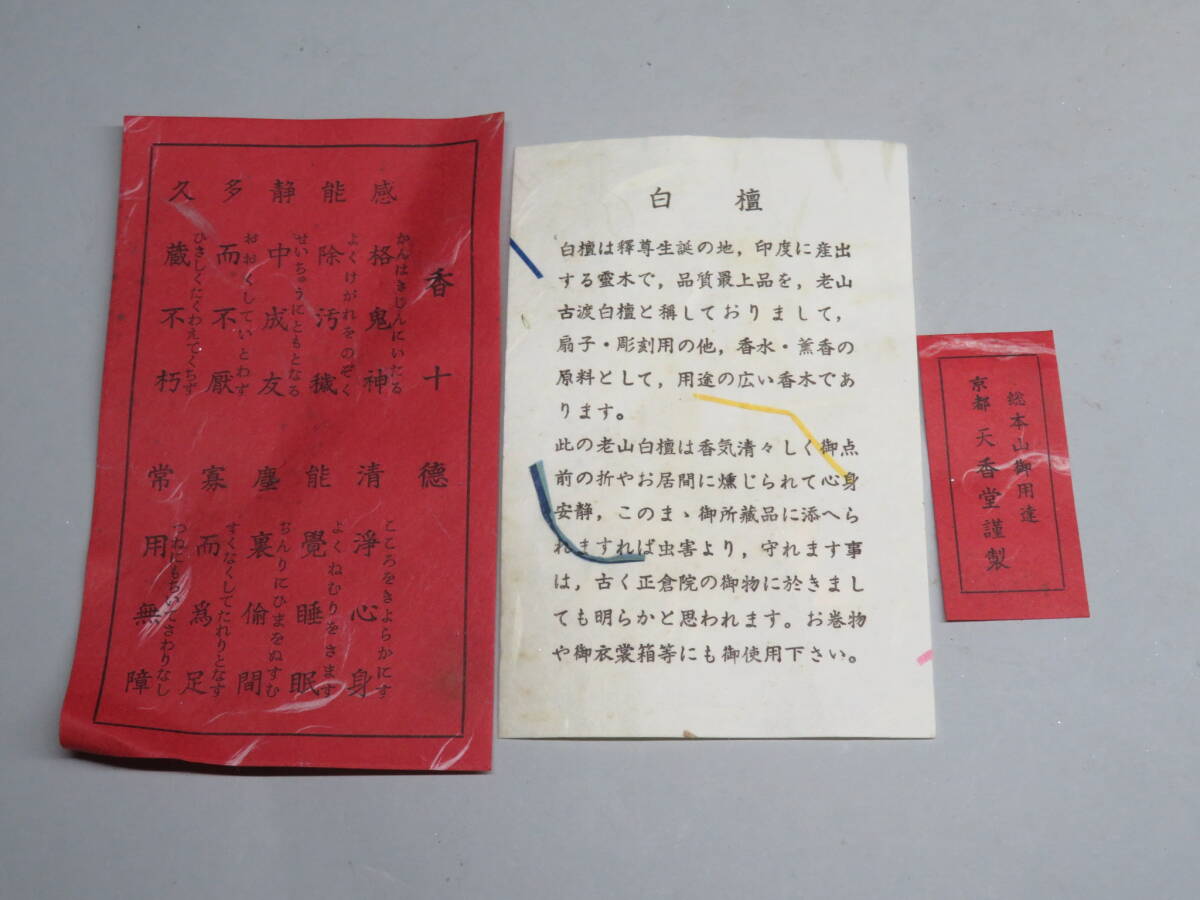 香十德
感格鬼神
かんはきじんにいたる
能除汚穢
よくけがれをのぞく
静中成友
せいちゅうにともとなる
多而不厭
おおくしていとわず
久蔵不朽
ひさしくたくわえてくちず
清淨心身
こころをきよらかにす
能覺睡眠
よくねむりをさます
塵裏偷間
ちんりにひまをぬすむ
寡而爲足
すくなくしてたれりとなす
常用無障
つねにもちいてさわりなし
白檀
白檀は釋尊生誕の地，印度に産出
する靈木で，品質最上品を，老山
古渡白檀と稱しておりまして，
扇子・彫刻用の他，香水・薫香の
原料として，用途の広い香木であ
ります。
此の老山白檀は香気清々しく御点
前の折やお居間に燻じられて心身
安静，このまゝ御所藏品に添へら
れますれば虫害より，守れます事
は，古く正倉院の御物に於きまし
ても明らかと思われます。お巻物
や御衣裳箱等にも御使用下さい。
総本山御用達
京都 天香堂謹製